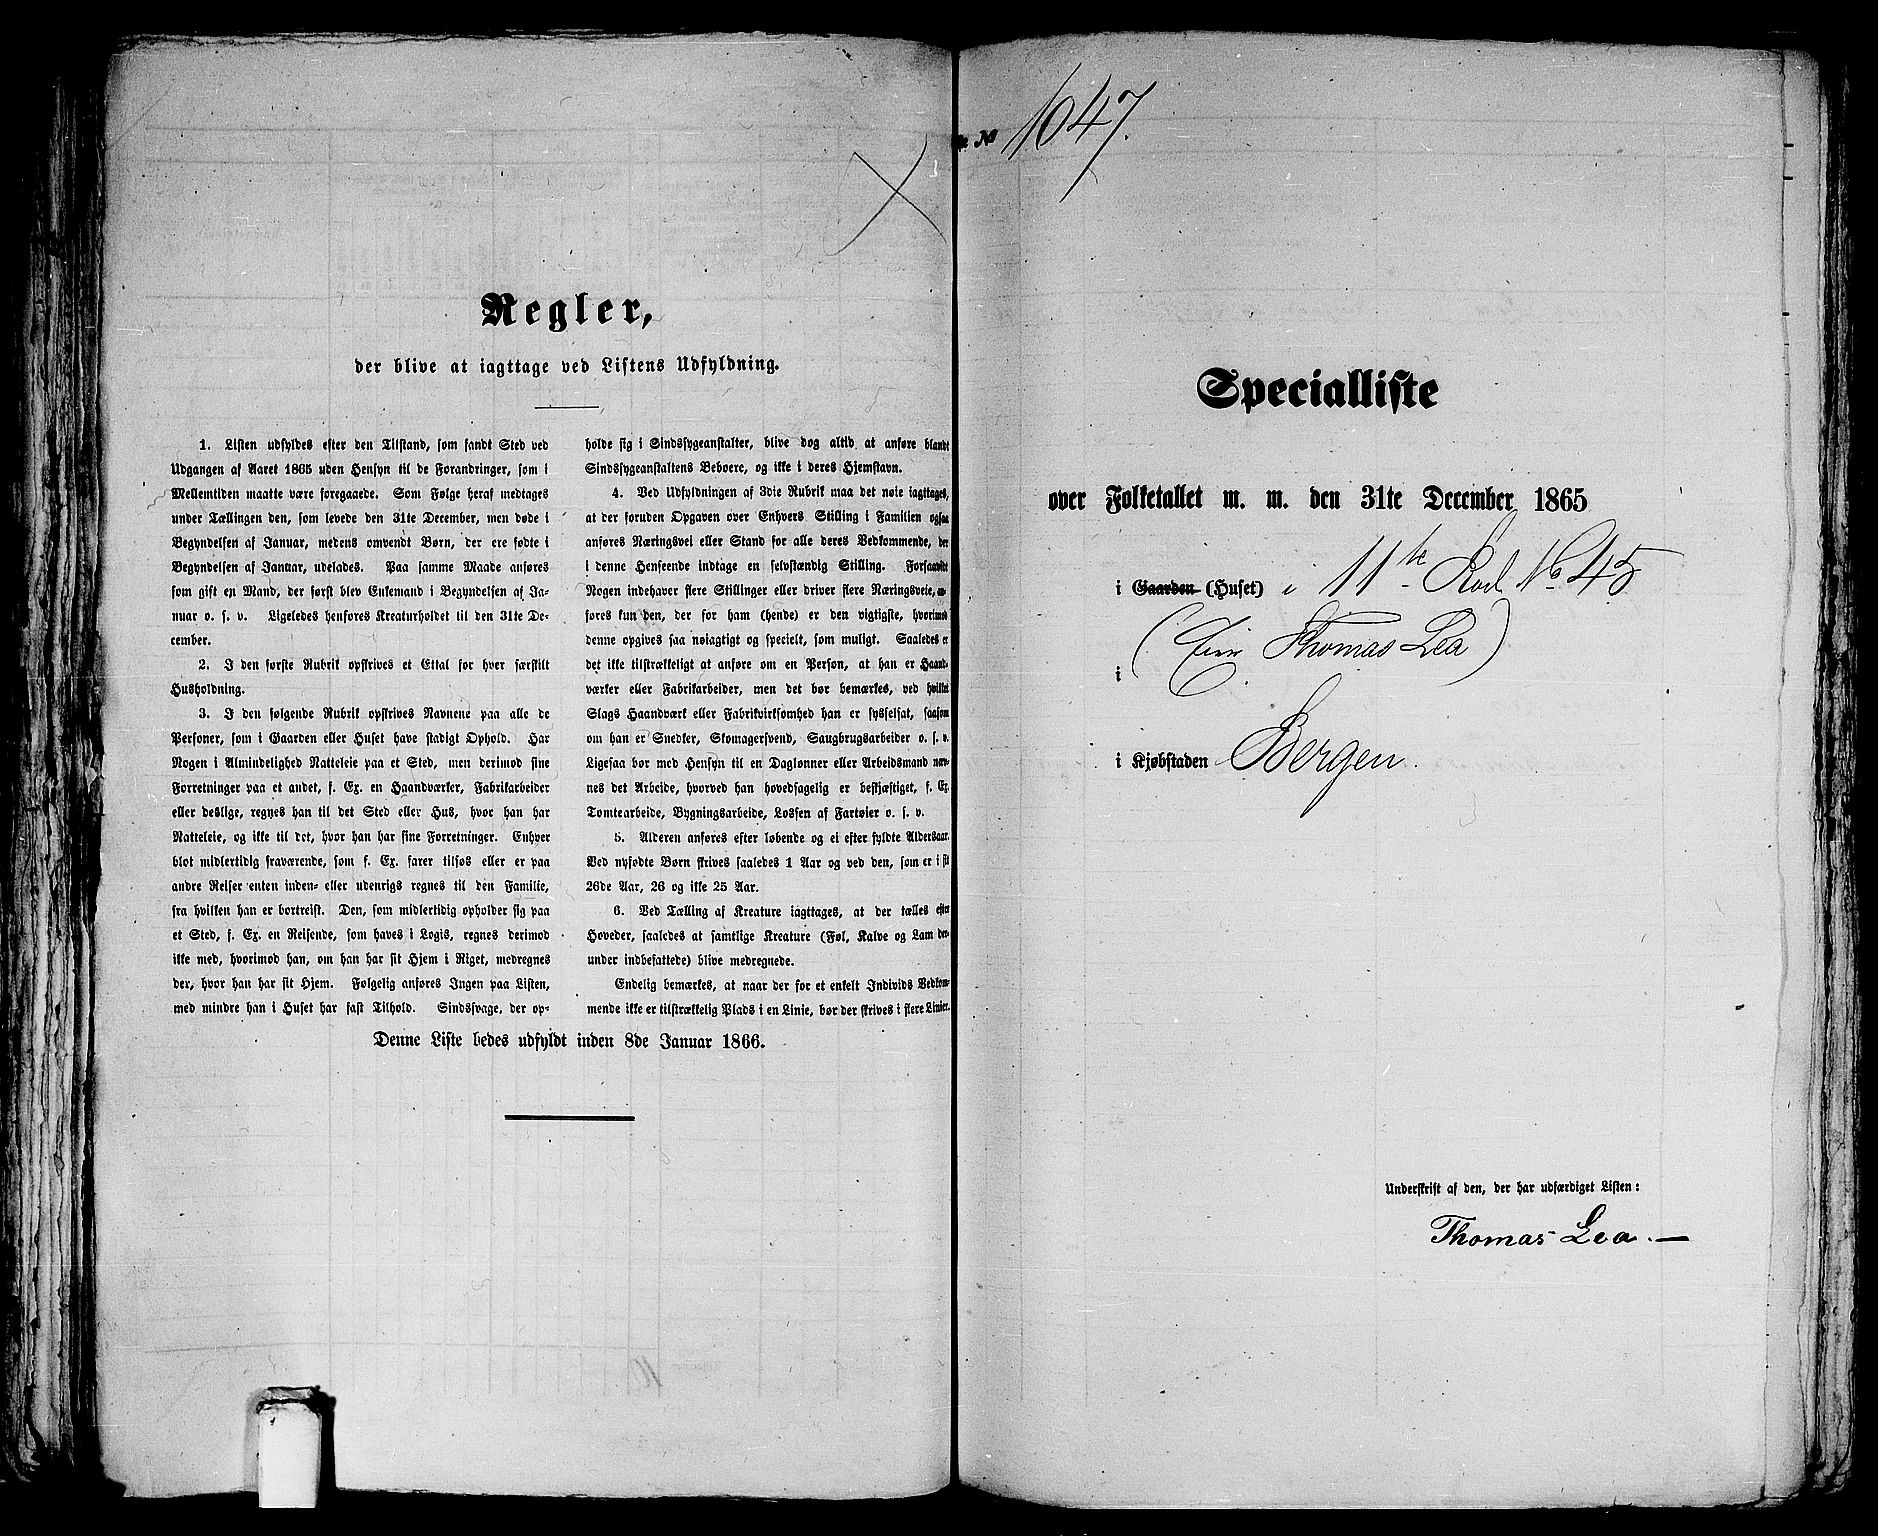 Regler,
der blive at iagttage ved Listens Udfyldning.
1. Listen udfyldes efter den Tilstand, som fandt Sted ved
Udgangen af Aaret 1865 uden Hensyn til de Forandringer, som i
Mellemtiden maatte være foregaaede. Som Følge heraf medtages
under Tællingen den, som levede den 31te December, men døde i
Begyndelsen af Januar, medens omvendt Børn, der ere fødte i
Begyndelsen af Januar, udelades. Paa samme Maade anføres
som gift en Mand, der først blev Enkemand i Begyndelsen af Ja-
nuar o. s. v. Ligeledes henføres Kreaturholdet til den 31te De-
cember.
2. I den første Rubrik opskrives et Ettal for hver særskilt
Husholdning.
3. I den følgende Rubrik opskrives Navnene paa alle de
Personer, som i Gaarden eller Huset have stadigt Ophold. Har
Nogen i Almindelighed Natteleie paa et Sted, men derimod sine
Forretninger paa et andet, f. Ex. en Haandværker, Fabrikarbeider
eller deslige, regnes han til det Sted eller Hus, hvor han har
Natteleie, og ikke til det, hvor han har sine Forretninger. Enhver
blot midlertidig fraværende, som f. Ex. farer tilsøs eller er paa
andre Reiser enten inden- eller udenrigs regnes til den Familie,
fra hvilken han er bortreist. Den, som midlertidig opholder sig paa
et Sted, f. Ex. en Reisende, som haves i Logis, regnes derimod
ikke med, hvorimod han, om han har sit Hjem i Riget, medregnes
der, hvor han har sit Hjem. Følgelig anføres Ingen paa Listen,
med mindre han i Huset har fast Tilhold. Sindssvage, der op-
holde sig i Sindssygeanstalter, blive dog altid at anføre blandt
Sindssygeanstaltens Beboere, og ikke i deres Hjemstavn.
4. Ved Udfyldningen af 3die Rubrik maa det nøie iagttages,
at der foruden Opgaven over Enhvers Stilling i Familien ogsaa
anføres Næringsvei eller Stand for alle deres Vedkommende, der
i denne Henseende indtage en selvstændig Stilling. Forsaavidt
Nogen indehaver flere Stillinger eller driver flere Næringsveie, an-
føres kun den, der for ham (hende) er den vigtigste, hvorimod
denne opgives saa nøiagtigt og specielt, som muligt. Saaledes er
det ikke tilstrækkeligt at anføre om en Person, at han er Haand-
værker eller Fabrikarbeider, men det bør bemærkes, ved hvilket
Slags Haandværk eller Fabrikvirksomhed han er sysselsat, saasom
om han er Snedker, Skomagersvend, Saugbrugsarbeider o. s. v.
Ligesaa bør med Hensyn til en Daglønner eller Arbeidsmand næv-
nes det Arbeide, hvorved han hovedsagelig er beskjæftiget, f. Ex.
Tomtearbeide, Bygningsarbeide, Lossen af Fartøier o. s. v.
5. Alderen anføres efter løbende og ei efter fyldte Aldersaar.
Ved nyfødte Børn skrives saaledes 1 Aar og ved den, som er i sit
26de Aar, 26 og ikke 25 Aar.
6. Ved Tælling af Kreature iagttages, at der tælles efter
Hoveder, saaledes at samtlige Kreature (Føl, Kalve og Lam der-
under indbefattede) blive medregnede.
Endelig bemærkes, at naar der for et enkelt Individs Vedkom-
mende ikke er tilstrækkelig Plads i en Linie, bør der skrives i flere Linier.
Denne Liste bedes udfyldt inden 8de Januar 1866.
No 1047.
Specialliste
over Folketallet m. m. den 31te December 1865
i Gaarden (Huset) i 11te Rode No 45
i (Eier Thomas Lea)
i Kjøbstaden Bergen.
Underskrift af den, der har udfærdiget Listen:
Thomas Lea.